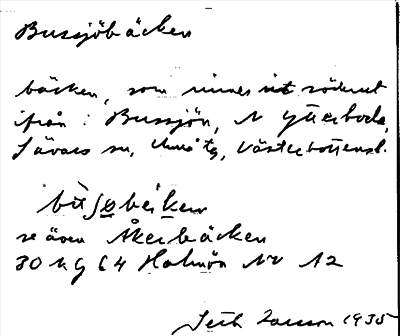 Bussjöbäcken
bäcken, som rinner ut söderut
ifrån: Bussjön, N Ytterboda,
Sävars sn, Umeå tg, Västerbottens l.
se även Åkerbäcken
30 h g 64 Holmön NV 12
Seth Larsson 1935